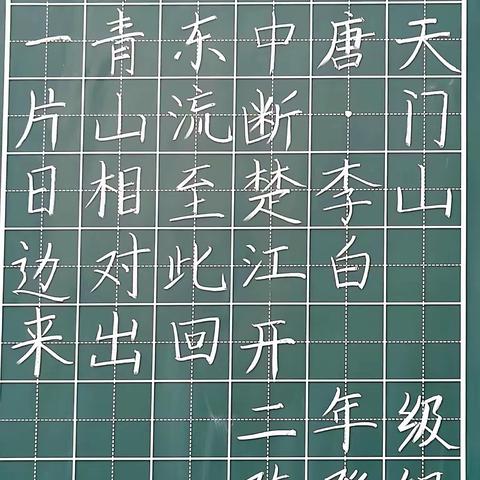 天门山
唐·李白
中断楚江开
东流至此回
青山相对出
一片日边来
二年级